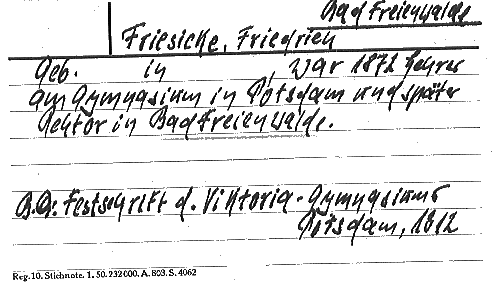 Bad Freienwalde
Friesicke, Friedrich
Geb. in , war 1872 Lehrer
am Gymnasium in Potsdam und später
Rektor in Bad Freienwalde.
B.Q: Festschrift d. Viktoria-Gymnasiums
Potsdam, 1912
Reg. 10. Stichnote. 1. 50. 232000. A. 803. S. 4062